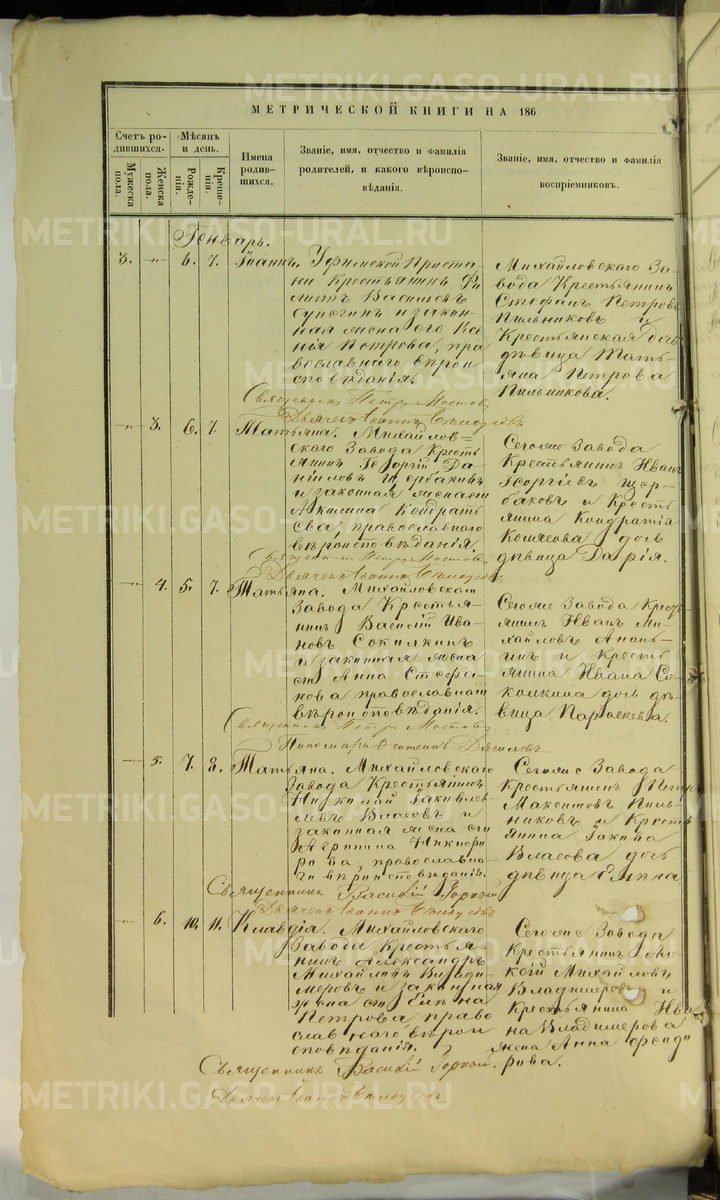 METRIKI.GASO-URAL.RU
МЕТРИЧЕСКОЙ КНИГИ НА 186
Счетъ ро-
дившихся.
Мужеска пола.
Женска пола.
Мѣсяцъ
и день.
Рожде-
нія.
Креще-
нія.
Имена
родив-
шихся.
Званіе, имя, отчество и фамилія
родителей, и какого вѣроиспо-
вѣданія.
Званіе, имя, отчество и фамилія
воспріемниковъ.
Генварь.
3. 6. 7. Іоаннъ. Уфимской Приста-
ни Крестьянинъ Фи-
липпъ Васильевъ
и закон-
ная жена его Ксе-
нія Петрова, пра
вославнаго вѣрои
сповѣданія.
Михайловскаго За-
вода Крестьянинъ
Стефанъ Петровъ
Пильниковъ и
Крестьянская дочь
дѣвица Тать-
яна Петрова
Пильникова.
Священникъ Петръ Мостовъ
Дьячекъ Іоаннъ
3. 6. 7. Татьяна. Михайлов=
скаго Завода Кресть
янинъ Георгій Да-
ніиловъ Щербаковъ
и законная жена его
Акилина Кондрать
ева, православнаго
вѣроисповѣданія.
Сегоже Завода
Крестьянинъ Иванъ
Георгіевъ Щер-
баковъ и Кресть
янина Кондратія
дочь
дѣвица Дарія.
Священникъ Петръ Мостовъ
Дьячекъ Іоаннъ
4. 5. 7. Татьяна. Михайловскаго
Завода Крестья-
нинъ Василій Ива
новъ Соколкинъ
и законная жена
его Анна Стефа-
нова православнаго
вѣроисповѣданія.
Сегоже Завода Кресть
янинъ Иванъ Ми-
хайловъ Анань-
инъ и Кресть
янина Ивана Со-
колкина дочь дѣ-
вица Параскева.
Священникъ Петръ Мостовъ
Пономарь
5. 7. 8. Татьяна. Михайловскаго
Завода Крестьянинъ
Николай Іаковлев
Власовъ и
законная жена его
Агрипина Никифо
рова, православна-
го вѣроисповѣданія.
Сегоже Завода
Крестьянинъ Петръ
Максимовъ Пиль-
никовъ и Кресть
янина Іакова
Власова дочь
дѣвица Елена
Священникъ Василій Горной
Дьячекъ Іоаннъ
6. 10. 11. Клавдія. Михайловскаго
Завода Крестья-
нинъ Александръ
Михайловъ Влади-
меровъ и законная
жена его Елена
Петрова право
славнаго вѣрои
сповѣданія.
Сегоже Завода
Крестьянинъ Але-
ксій Михайловъ
Владимеровъ и
Крестьянина Ива
на Владимерова
жена Анна Феодо
рова.
Священникъ Василій Горной.
Дьячекъ Іоаннъ